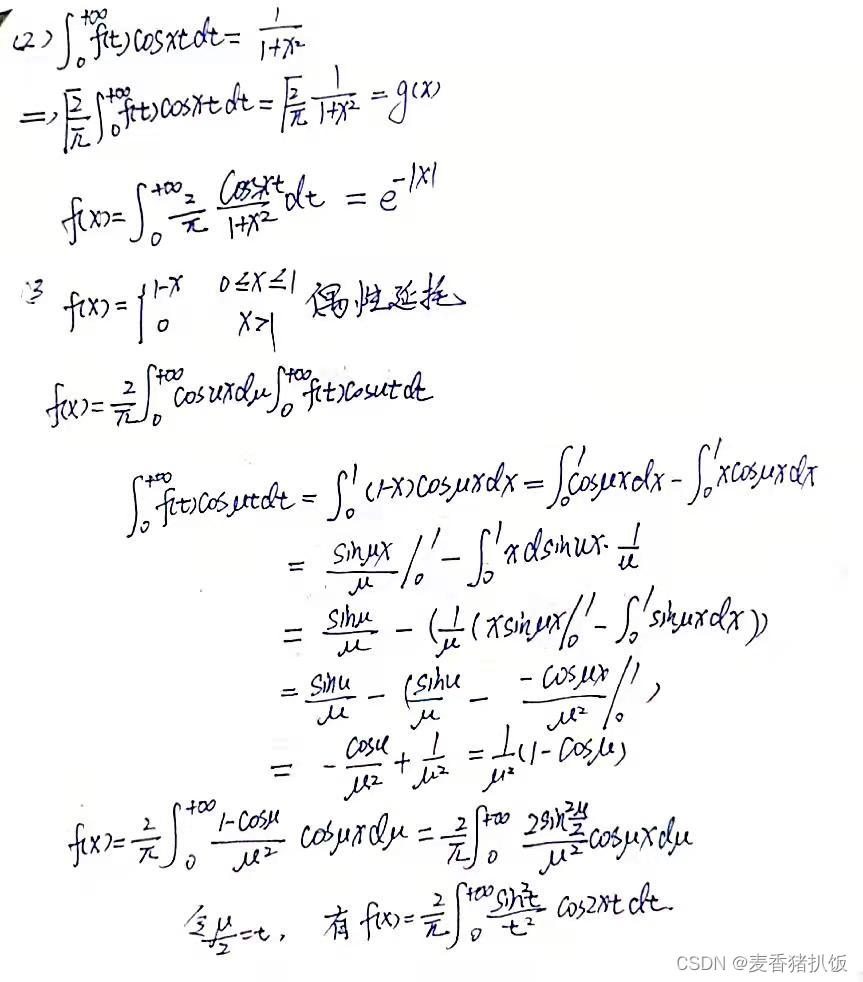 (2) ∫₀^{+∞} f(t)cosxtdt = 1/(1+x²)
⇒ √(2/π) ∫₀^{+∞} f(t)cosxtdt = √(2/π) 1/(1+x²) = g(x)
f(x) = ∫₀^{+∞} 2/π cosxt/(1+x²) dt = e^{-|x|}
3 f(x) = { 1-x 0≤x≤1 偶性延拓
0 x>1
f(x) = 2/π ∫₀^{+∞} cosuxdμ ∫₀^{+∞} f(t)cosutdt
∫₀^{+∞} f(t)cosμtdt = ∫₀¹ (1-x)cosμxdx = ∫₀¹ cosμxdx - ∫₀¹ xcosμxdx
= sinμx/μ |₀¹ - ∫₀¹ xdsinux · 1/u
= sinμ/μ - (1/μ (xsinμx|₀¹ - ∫₀¹ sinμxdx))
= sinu/μ - (sinu/μ - -cosμx/μ² |₀¹)
= - cosu/μ² + 1/μ² = 1/μ² (1-cosμ)
f(x) = 2/π ∫₀^{+∞} (1-cosμ)/μ² cosμxdμ = 2/π ∫₀^{+∞} 2sin²(μ/2)/μ² cosμxdμ
令 μ/2 = t, 有 f(x) = 2/π ∫₀^{+∞} sin²t/t² cos2xtdt.
CSDN @麦香猪扒饭